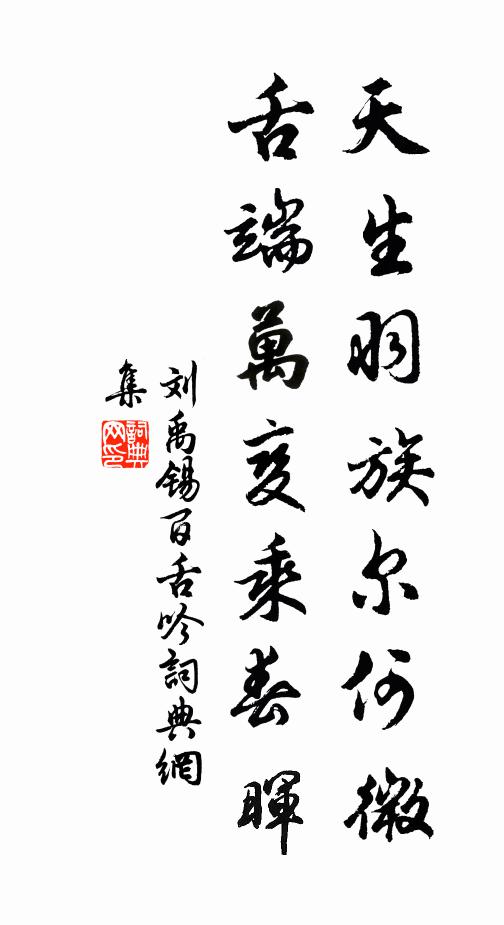 天生羽族尔何微
舌端萬变乘春暉
刘禹锡百舌吟詞典網
集
詞典
网印